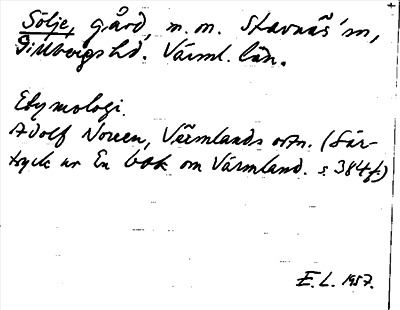 Sölje, gård, m.m. Stavnäs' sn,
Gillbergs hd. Värml. län.
Etymologi.
Adolf Noreen, Värmlands ortn. (Sär-
tryck ur En bok om Värmland. s. 384 f.)
E. L. 1957.